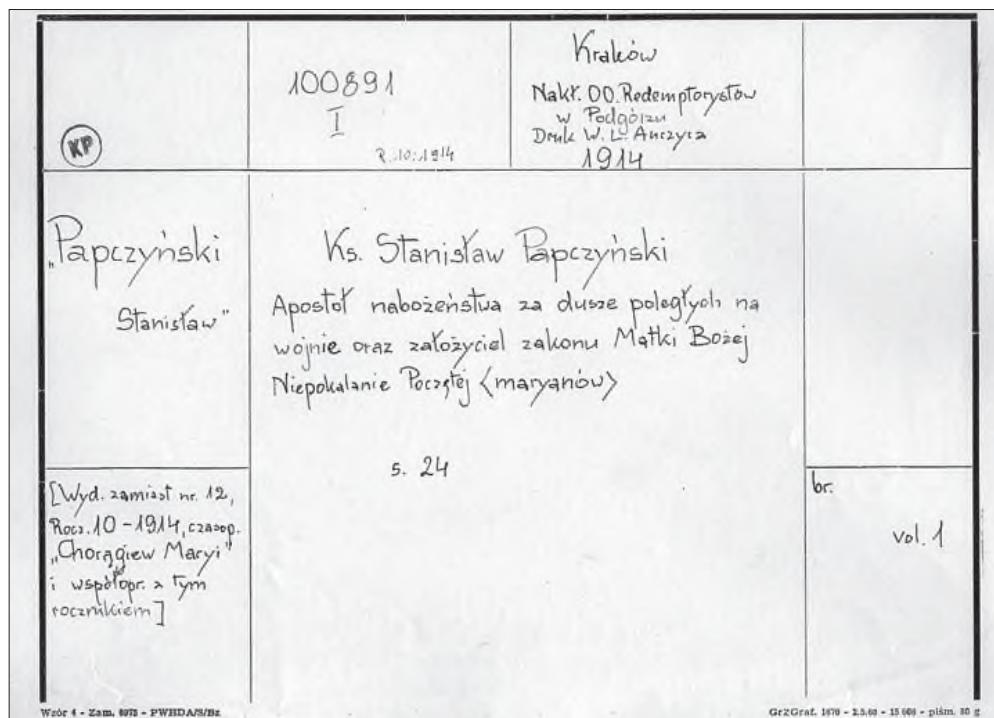 KP
100891
I
R.10:1914
Kraków
Nakł. OO. Redemptorystów
w Podgórzu
Druk W. L. Anczyca
1914
„Papczyński
Stanisław”
Ks. Stanisław Papczyński
Apostoł nabożeństwa za dusze poległych na
wojnie oraz założyciel zakonu Matki Bożej
Niepokalanie Poczętej <maryanów>
s. 24
[Wyd. zamiast nr. 12,
Rocz. 10 - 1914, czasop.
„Chorągiew Maryi”
i współopr. z tym
rocznikiem]
br.
vol. 1
Wzór 4 - Zam. - PWHDA/S/Bz
GrZGraf. 1670 - 2.5.60 - 15 608 - piśm. 80 g